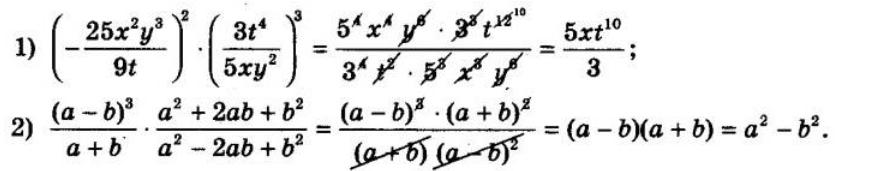 1) (-25x²y³/9t)² · (3t⁴/5xy²)³ = 5⁴x⁴y⁶ · 3³t¹²¹⁰/3⁴t² · 5³x³y⁶ = 5xt¹⁰/3;
2) (a – b)³/a + b · a² + 2ab + b²/a² – 2ab + b² = (a – b)³ · (a + b)²/(a + b)(a – b)² = (a – b)(a + b) = a² – b².